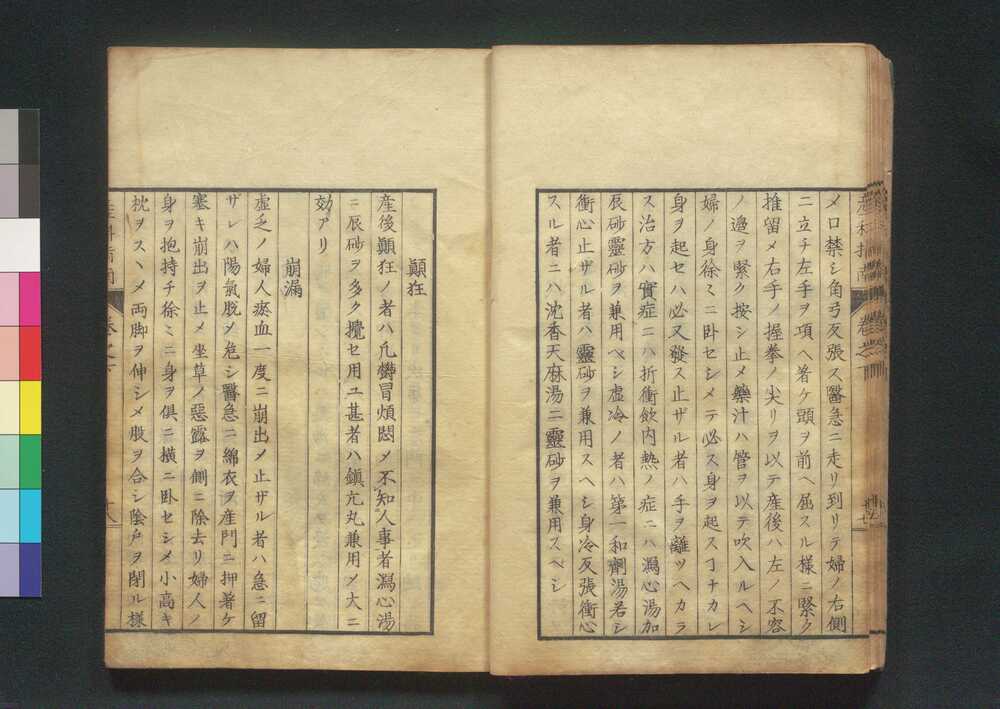 メ口禁シ角弓反張ス醫急ニ走リ到リテ婦ノ右側
ニ立チ左手ヲ項ヘ着ケ頭ヲ前ヘ屈スル様ニ緊ク
推留メ右手ノ握拳ノ尖リヲ以テ産後ハ左ノ不容
ノ邉ヲ緊ク按シ止メ藥汁ハ管ヲ以テ吹入ルヘシ
婦ノ身徐ミニ卧セシメテ必ス身ヲ起スヿナカレ
身ヲ起セハ必又發ス止ザル者ハ手ヲ離ツヘカラ
ス治方ハ實症ニハ折衝飲内熱ノ症ニハ瀉心湯加
辰砂靈砂ヲ兼用ベシ虚冷ノ者ハ第一和劑湯若シ
衝心止ザル者ハ靈砂ヲ兼用スヘシ身冷反張衝心
スル者ニハ沈香天麻湯ニ靈砂ヲ兼用スベシ
顚狂
産後顚狂ノ者ハ凡欝冒煩悶メ不知人事者瀉心湯
ニ辰砂ヲ多ク攪セ用ユ甚者ハ鎮亢丸兼用メ大ニ
効アリ
崩漏
虚乏ノ婦人瘀血一度ニ崩出メ止ザル者ハ急ニ留
ザレハ陽氣脱メ危シ醫急ニ綿衣ヲ産門ニ押着ケ
塞キ崩出ヲ止メ坐草ノ惡露ヲ側ニ除去リ婦人ノ
身ヲ抱持チ徐ミニ身ヲ倶ニ横ニ卧セシメ小高キ
枕ヲスヽメ両脚ヲ伸シメ股ヲ合シ陰戸ヲ閉ル様